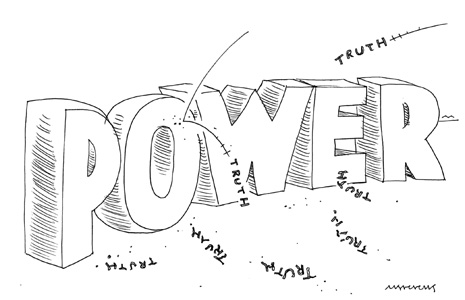 TRUTH
POWER
TRUTH
TRUTH
TRUTH
TRUTH
TRUTH
TRUTH
TRUTH